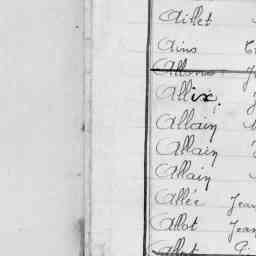 Aillet
Ains
Allix
Allain
Allain
Allain
Allée Jean
Allot Jean
Allot